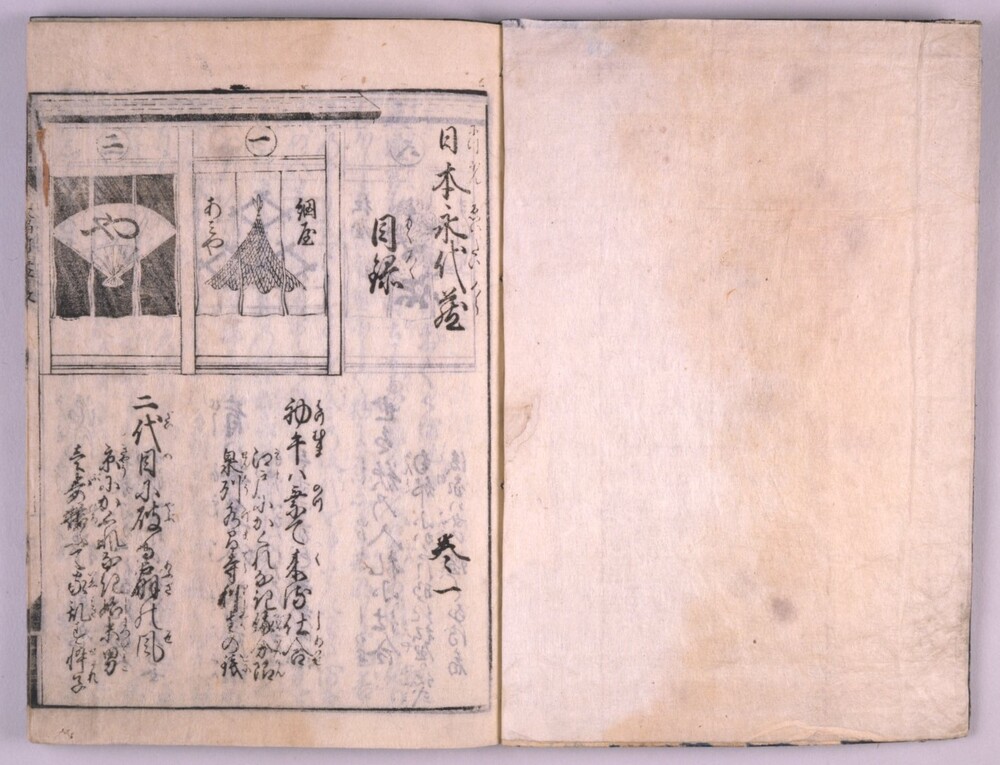 日本永代蔵
目録
巻一
一
網屋
あみや
初午ハ乗て来る仕合
江戸にかくれなき俄分限
泉州水間寺利生の銭
二
二代目に破る扇の風
京にかくれなき始末男
壱歩拾ふて家乱す悴子